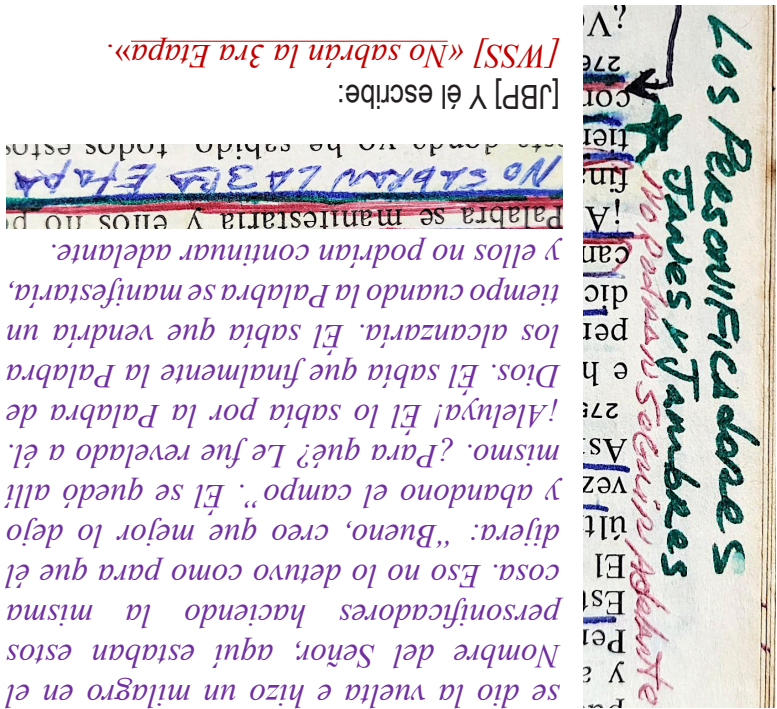 se dio la vuelta e hizo un milagro en el
Nombre del Señor, aquí estaban estos
personificadores haciendo la misma
cosa. Eso no lo detuvo como para que él
dijera: “Bueno, creo que mejor lo dejo
y abandono el campo”. Él se quedó allí
mismo. ¿Para qué? Le fue revelado a él.
¡Aleluya! Él lo sabía por la Palabra de
Dios. Él sabía que finalmente la Palabra
los alcanzaría. Él sabía que vendría un
tiempo cuando la Palabra se manifestaría,
y ellos no podrían continuar adelante.
Palabra se manifestaría y ellos no
NO SABRAN LA 3RA Etapa
todos estos
[JBP] Y él escribe:
[WSS] «No sabrán la 3ra Etapa».
Los Personificadores
Janes y Jambres
No Podran Seguir Adelante